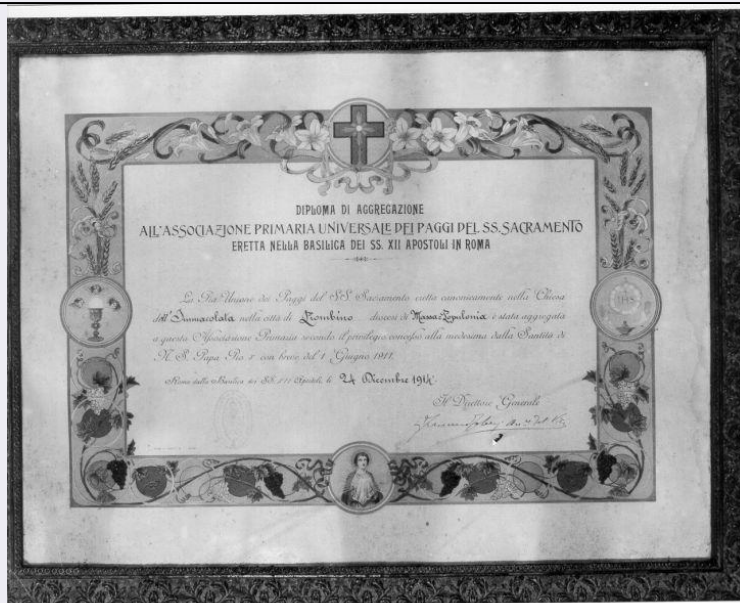 DIPLOMA DI AGGREGAZIONE
ALL'ASSOCIAZIONE PRIMARIA UNIVERSALE DEI PAGGI DEL SS. SACRAMENTO
ERETTA NELLA BASILICA DEI SS. XII APOSTOLI IN ROMA
La Pia Unione dei Paggi del SS. Sacramento eretta canonicamente nella Chiesa
dell'Immacolata nella città di Piombino diocesi di Massa Populonia è stata aggregata
a questa Associazione Primaria secondo il privilegio concesso alla medesima dalla Santità di
N. S. Papa Pio X con breve del 1 Giugno 1911.
Roma dalla Basilica dei SS. XII Apostoli, li 24 Dicembre 1914.
Il Direttore Generale